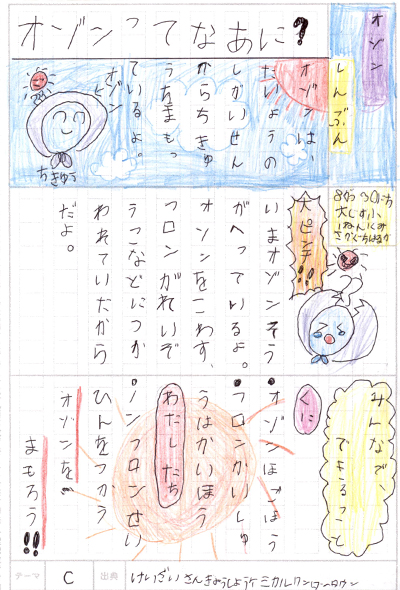 オゾン
しんぶん
オゾンってなあに?
オゾンは、
たいようの
しがいせん
からちきゅ
うをまもっ
ているよ。
オゾン
ちきゅう
8がつ30にち
大しま小
1ねん1くみ
大ピンチ!!
いまオゾンそう
がへっているよ。
オゾンをこわす、
フロンがれいぞ
うこなどにつか
われていたから
だよ。
みんなで、
できること
くに
・オゾンほごほう
・フロンかいしゅ
うはかいほう
わたしたち
・ノンフロンせい
ひんをつかう
オゾンを
まもろう!!
テーマ C 出典 けいざいさんぎょうしょうケミカルワンダータウン